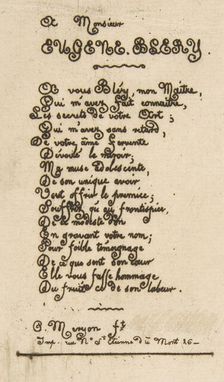 A Monsieur
EUGENE BLERY
A vous Bléry, mon Maître,
Qui m'avez fait connaître,
Les secrets de votre Art;
Qui m'avez sans retard,
De votre âme fervente
Dévoilé le miroir;
Ma muse adolescente,
De son unique avoir
Vient offrir le premice;
Souffrez qu'au frontispice,
De ce modeste don
En gravant votre nom;
Pour foible témoignage
De ce que sent son cœur
Elle vous fasse hommage
Du fruit de son labeur.
C. Meryon ft
Imp. rue Nº St Etienne du Mont 26